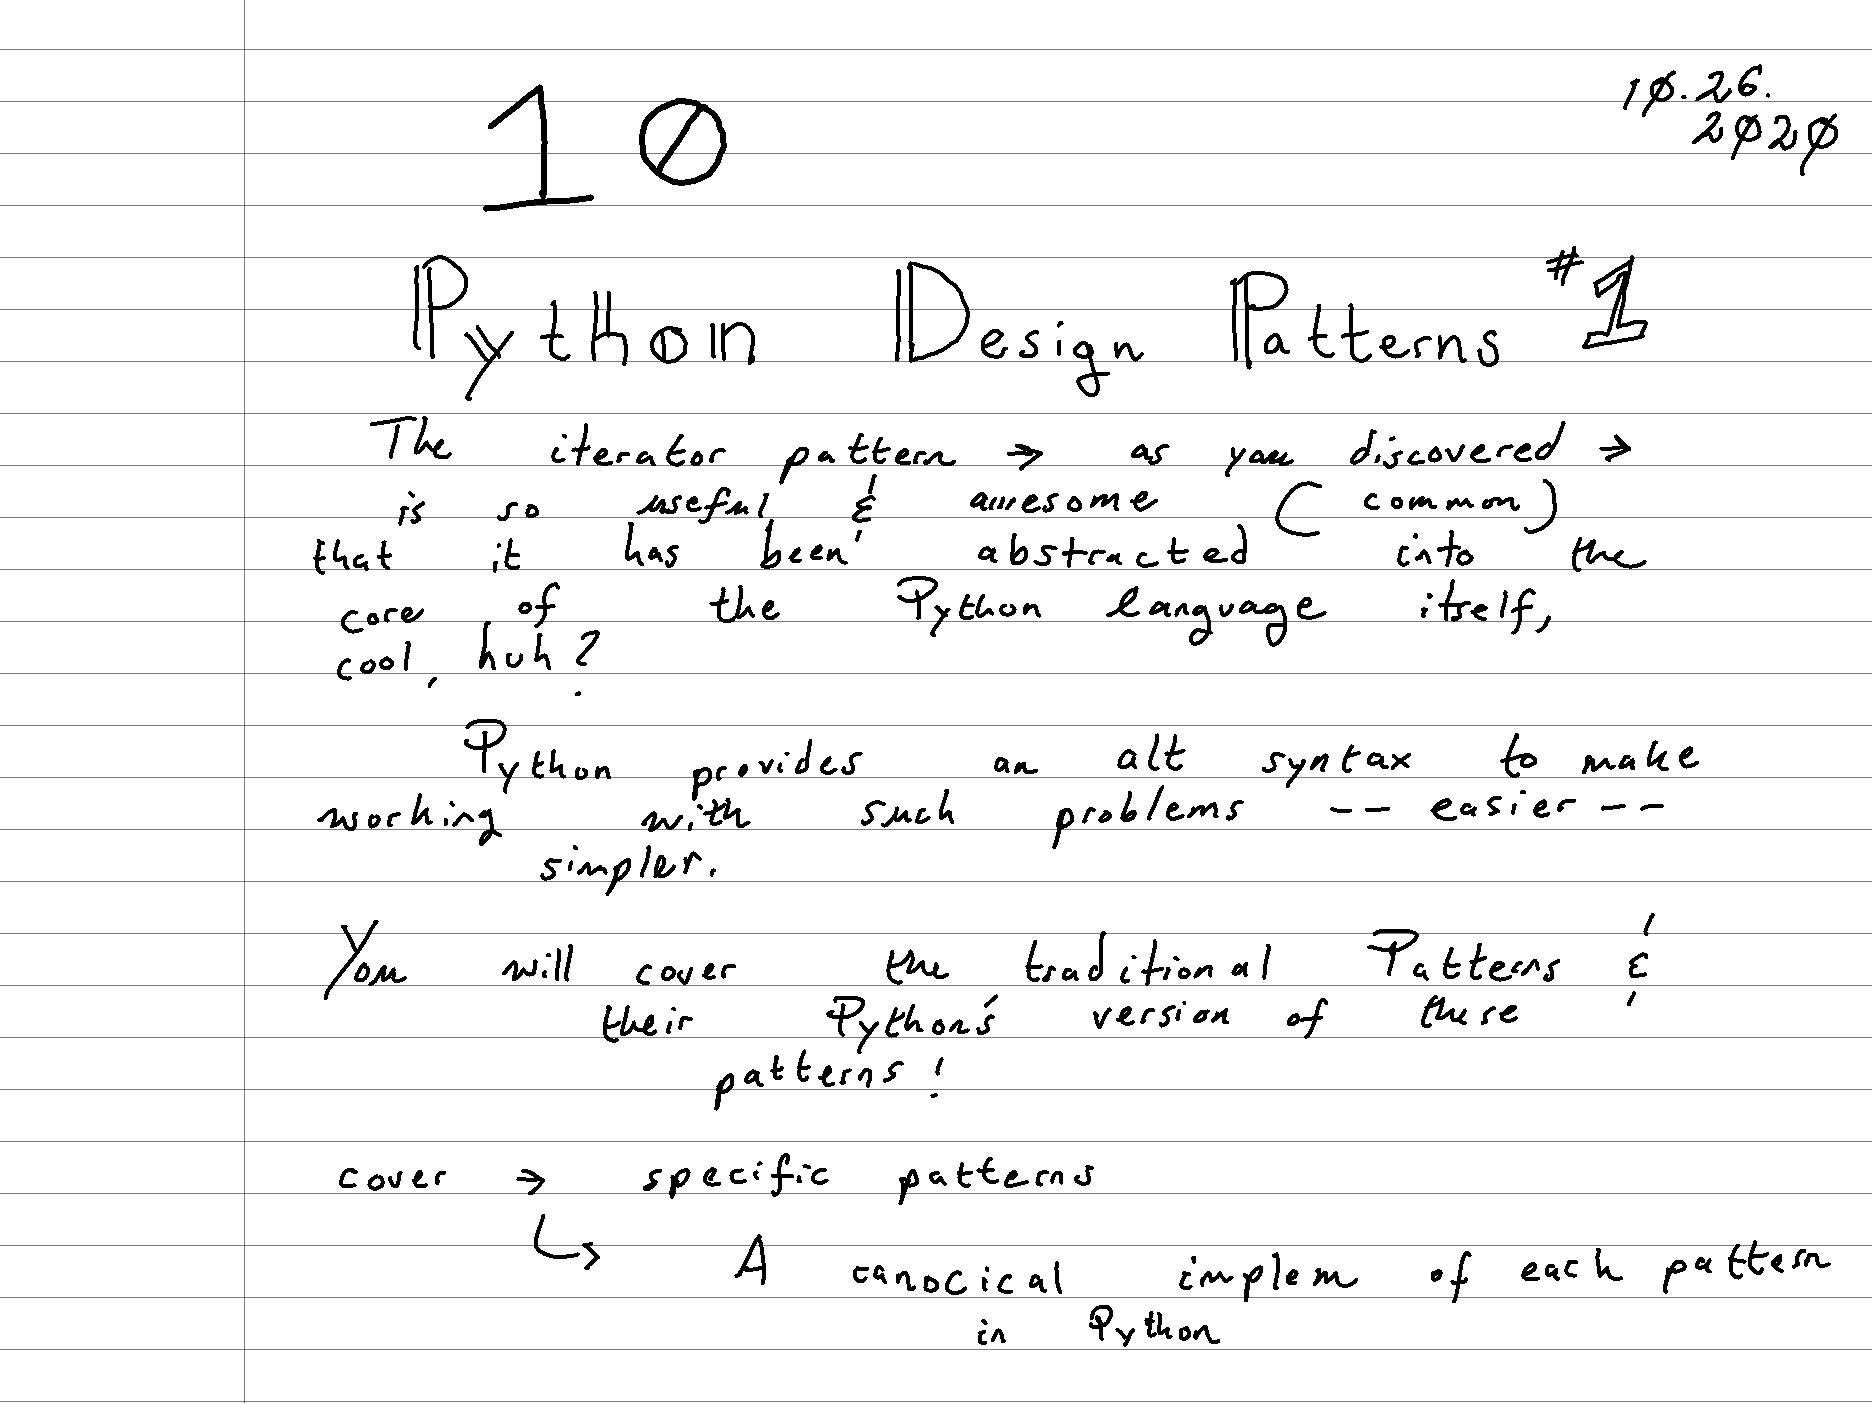 10
10.26.
2020
Python Design Patterns #1
The iterator pattern → as you discovered →
is so useful & awesome (common)
that it has been abstracted into the
core of the Python language itself,
cool, huh?
Python provides an alt syntax to make
working with such problems -- easier --
simpler.
You will cover the traditional Patterns &
their Python's version of these
patterns!
cover → specific patterns
↳ A canocical implem of each pattern
in Python